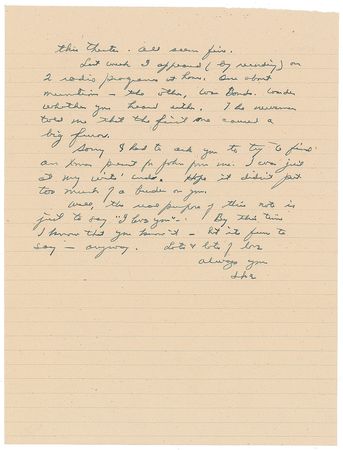 this theatre. All seem fine.
Last week I appeared (by recording) on
2 radio programs at home. One about
munitions & the other, War Bonds. Wonder
whether you heard either. The newsmen
told me that the first one caused a
big furor.
Sorry I had to ask you to try to find
an Xmas present for John from me. I was just
at my wits' ends. Hope it didn't put
too much of a burden on you.
Well, the real purpose of this note is
just to say "I love you"-. By this time
I know that you know it - but it's fun to
say - anyway. Lots & lots of love
Always your
Ike